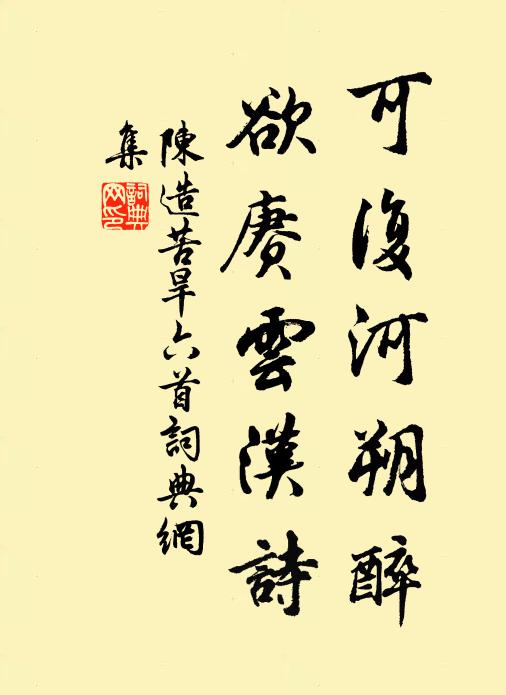 可復河朔醉
欲賡雲漢詩
陳造苦旱六首詞典網
集
詞典
网印